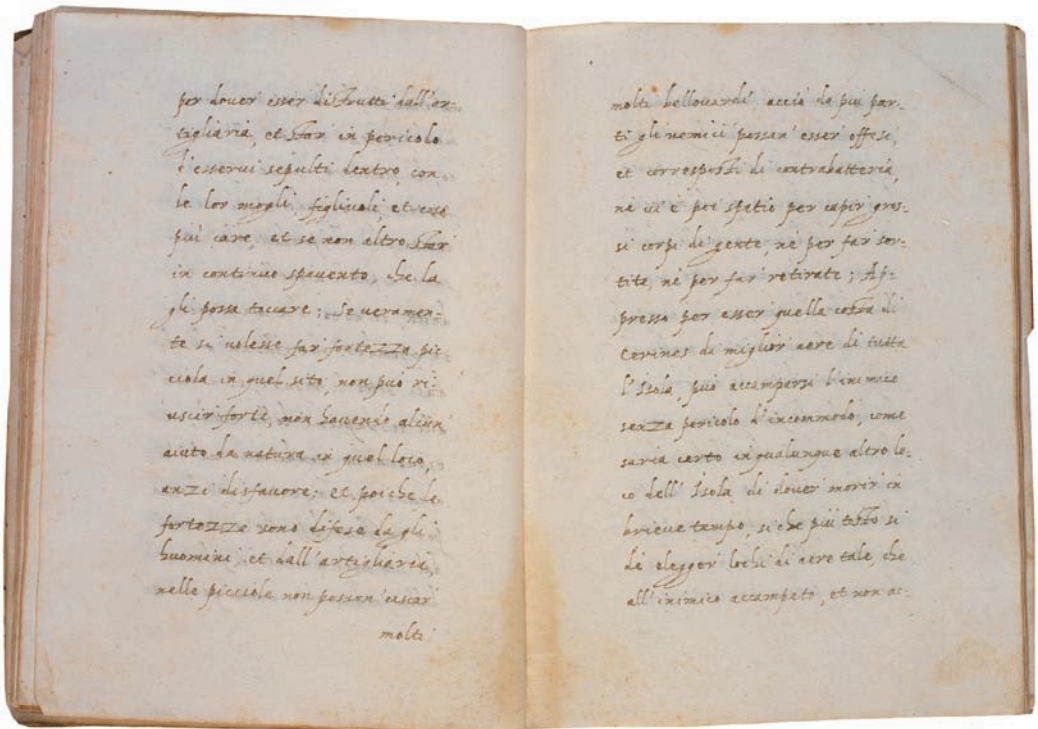 per douer esser distrutti dall'ar-
tigliaria, et star in pericolo
d'esserui sepulti dentro con
le lor mogli, figliuoli, et cose
più care, et se non altro star
in continuo spauento, che la
gli posse toccare; Se ueramen-
te si uolesse far fortezza pic-
ciola in quel sito, non può ri-
uscir forte, non hauendo alcun
aiuto da natura in quel loco,
anzi disfauore; et poiche le
fortezze sono difese da gli
huomini, et dall'artigliaria,
nelle picciole non posson cascar
molti
molti bellouardi acciò da più par-
ti gli nemici possan' esser offesi,
et corrisposti di contrabatteria,
nè ui è poi spatio per capir gros-
si corpi di gente, nè per far sor-
tite, nè per far retirate; Ap-
presso per esser quella costa di
Cerines da miglior aere di tutta
l'Isola, può accamparsi l'inimico
senza pericolo d'incommodo, come
saria certo in qualunque altro lo-
co dell'Isola di douer morir in
brieue tempo, si che più tosto si
dè elegger lochi di aere tale, che
all'inimico accampato, et non ac-